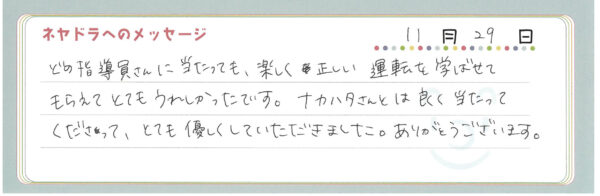 ネヤドラへのメッセージ 11 月 29 日
どの指導員さんに当たっても、楽しく正しい 運転を学ばせて
もらえてとてもうれしかったです。ナカハタさんとは良く当たって
くださって、とても優しくしていただきました。ありがとうございます。